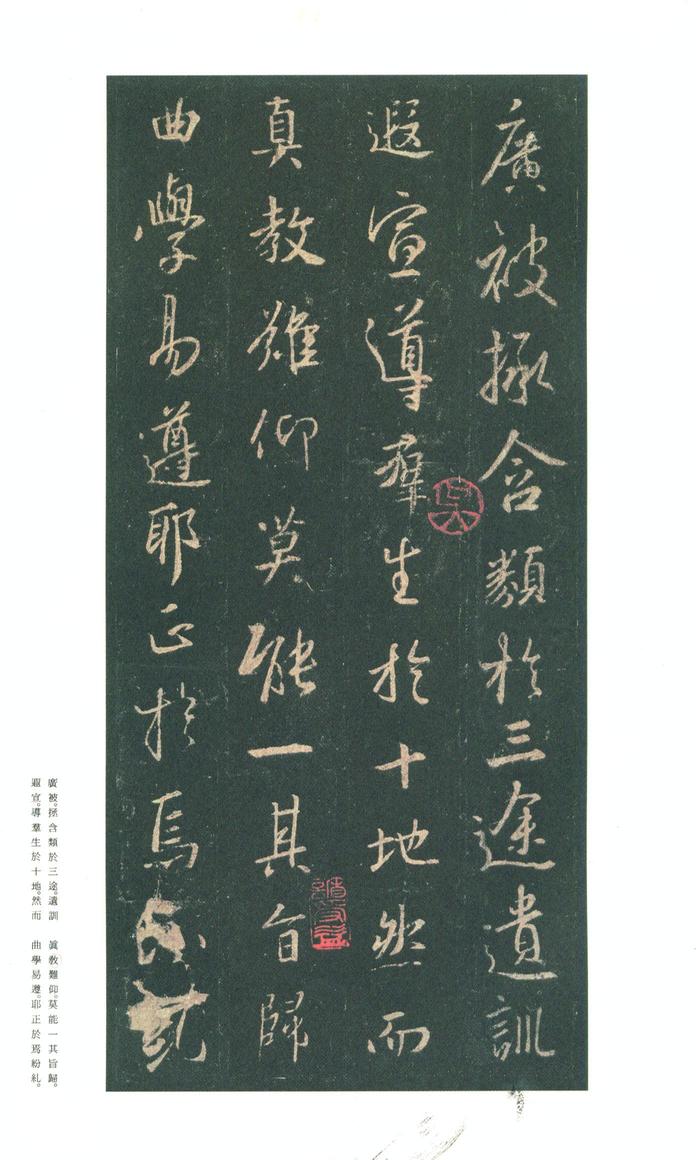 廣被拯含類於三途遺訓
遐宣導群生於十地然而
真教難仰莫能一其旨歸
曲學易遵耶正於焉紛糺
廣被。拯含類於三途。遺訓
遐宣。導羣生於十地。然而
眞教難仰。莫能一其旨歸。
曲學易遵。耶正於焉紛糺。